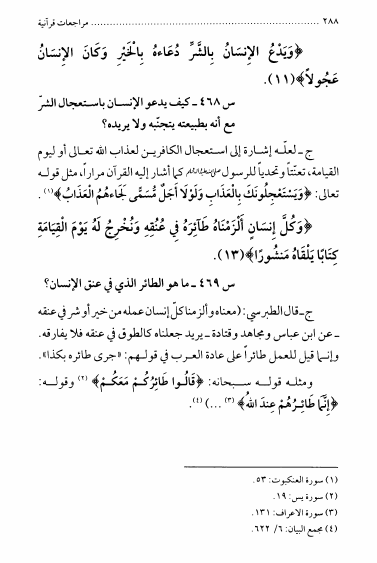 ٢٨٨ ........................................................ مراجعات قرآنية
﴿وَيَدْعُ الإِنسَانُ بِالشَّرِّ دُعَاءهُ بِالْخَيْرِ وَكَانَ الإِنسَانُ
عَجُولاً﴾(١١).
س ٤٦٨ ـ كيف يدعو الإنسان باستعجال الشرّ
مع أنه بطبيعته يتجنّبه ولا يريده؟
ج ـ لعلّه إشارة إلى استعجال الكافرين لعذاب الله تعالى أو ليوم
القيامة، تعنّتاً وتحدياً للرسول كما أشار إليه القرآن مراراً، مثل قوله
تعالى: ﴿وَيَسْتَعْجِلُونَكَ بِالْعَذَابِ وَلَوْلَا أَجَلٌ مُّسَمًّى لَجَاءهُمُ الْعَذَابُ﴾(١).
﴿وَكُلَّ إِنسَانٍ أَلْزَمْنَاهُ طَآئِرَهُ فِي عُنُقِهِ وَنُخْرِجُ لَهُ يَوْمَ الْقِيَامَةِ
كِتَابًا يَلْقَاهُ مَنشُورًا﴾(١٣).
س ٤٦٩ ـ ما هو الطائر الذي في عنق الإنسان؟
ج ـ قال الطبرسي: (معناه وألزمنا كلّ إنسان عمله من خير أو شر في عنقه
ـ عن ابن عباس ومجاهد وقتادة ـ يريد جعلناه كالطوق في عنقه فلا يفارقه.
وإنما قيل للعمل طائراً على عادة العرب في قولهم: «جرى طائره بكذا».
ومثله قوله سبحانه: ﴿قَالُوا طَائِرُكُمْ مَعَكُمْ﴾ (٢) وقوله:
﴿إِنَّمَا طَائِرُهُمْ عِندَ اللهُ﴾ (٣) ...) (٤).
(١) سورة العنكبوت: ٥٣.
(٢) سورة يس: ١٩.
(٣) سورة الاعراف: ١٣١.
(٤) مجمع البيان: ٦/ ٦٢٢.